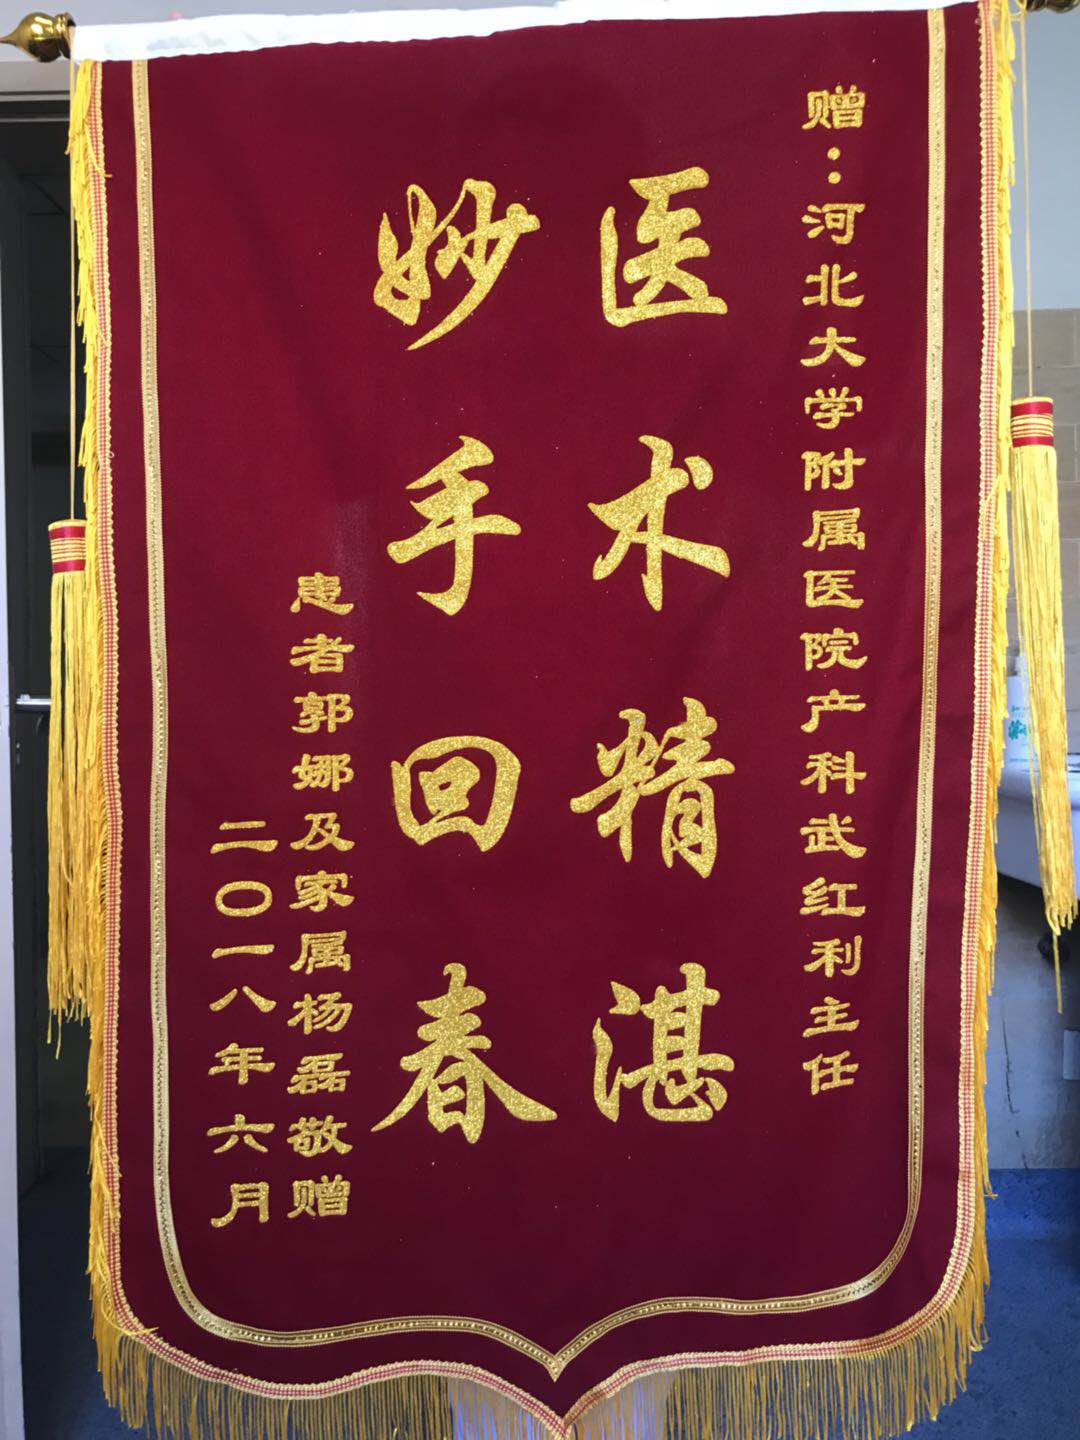 赠：河北大学附属医院产科武红利主任
医术精湛
妙手回春
患者郭娜及家属杨磊敬赠
二〇一八年六月